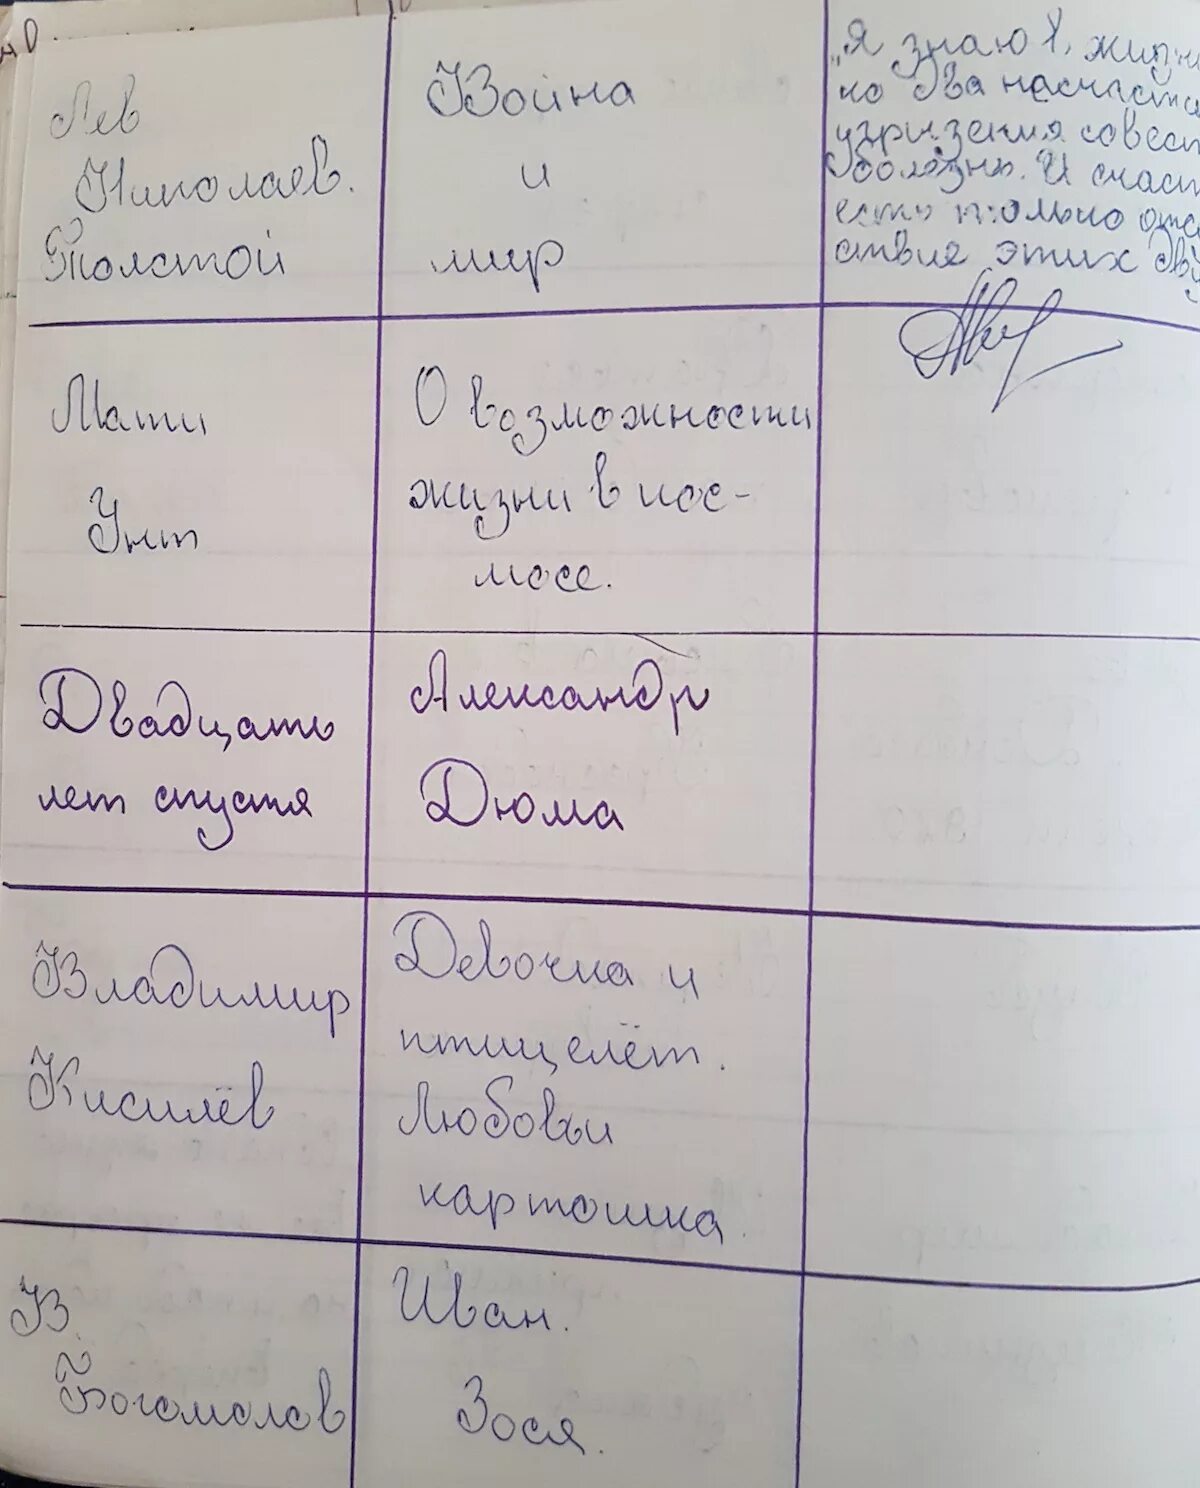 Лев
Николаев.
Толстой
Война
и
мир
„Я знаю в жизни
но два несчастья
угрызения совест
болезнь. И счаст
есть только отсу
ствие этих дву
Мати
Унт
О возможности
жизни в кос-
мосе.
Двадцать
лет спустя
Александр
Дюма
Владимир
Кисилёв
Девочка и
птицелёт.
Любовь и
картошка.
В.
Богомолов
Иван.
Зося.